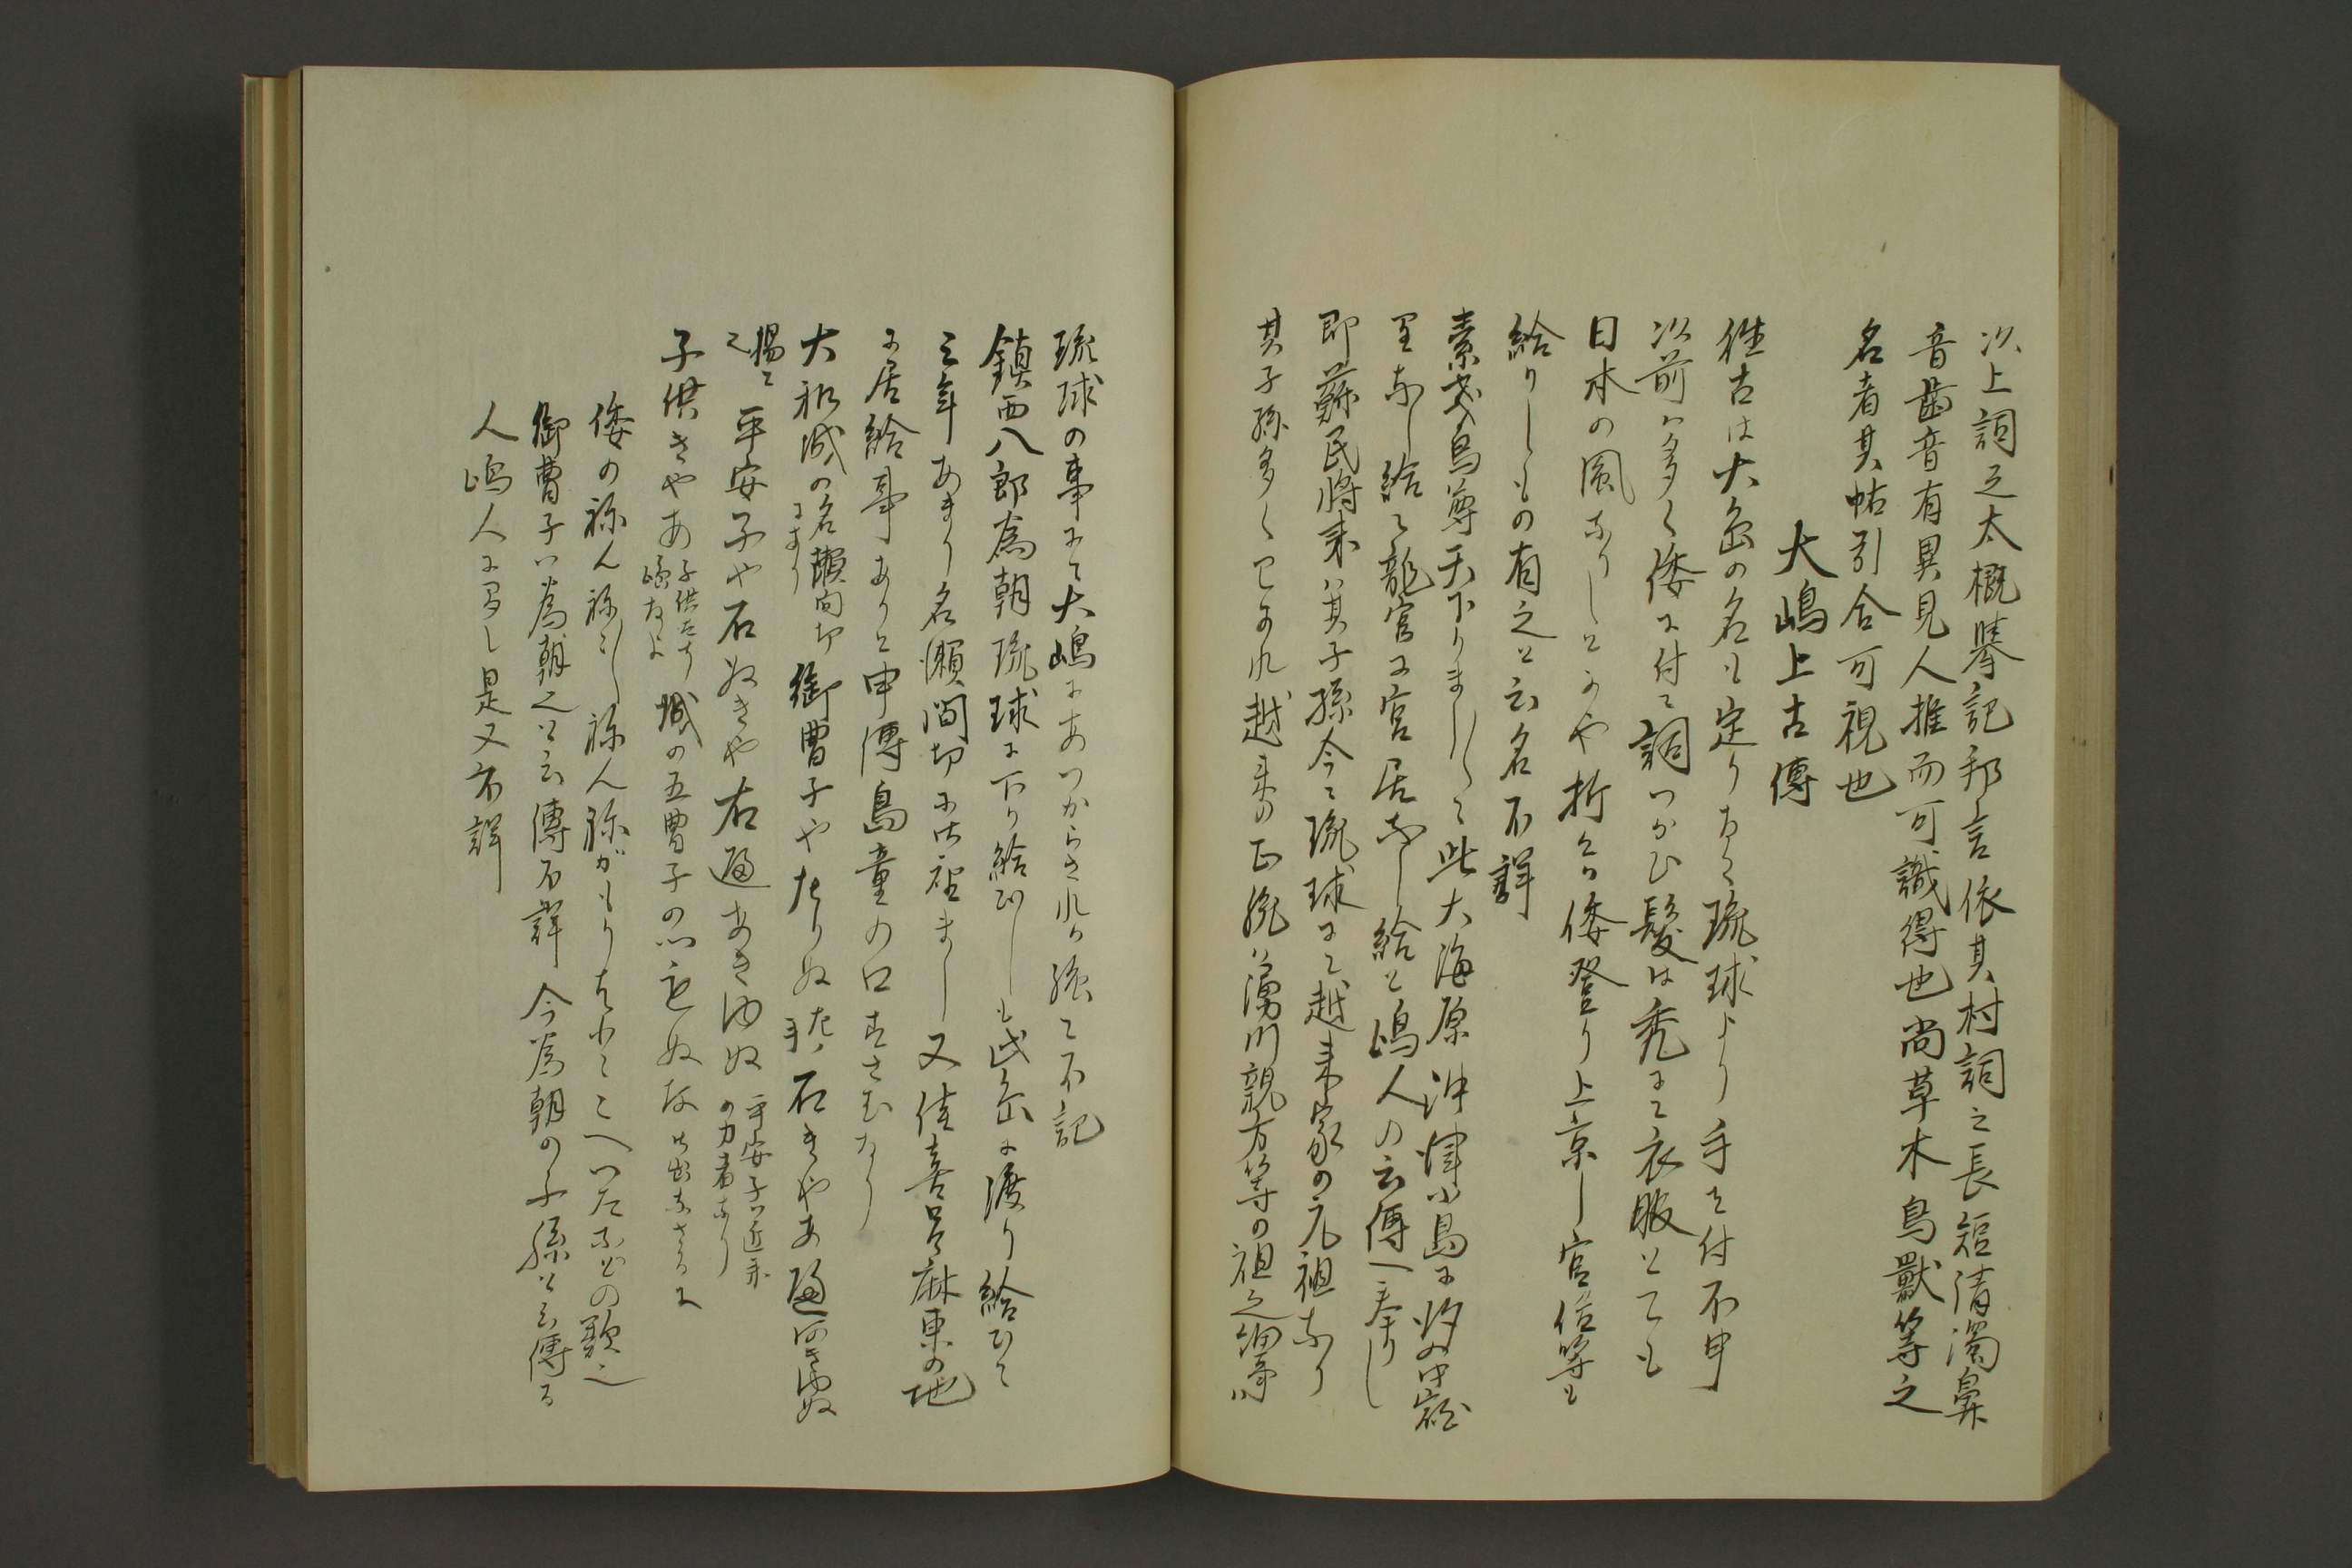 以上詞之大概挙記邦言依其村詞之長短清濁鼻
音歯音有異見人推而可識得也尚草木鳥獣等之
名者其帖引合可視也
大嶋上古傳
往古は大島の名も定りなく琉球より手を付不申
以前ハ多く倭に付て詞つかひ髪は禿にて衣服とても
日本の風なりしとかや折々は倭登り上京し官位等も
給りしもの有之と云名不詳
素戔烏尊天下りましして此大海原沖津小島に
なし給て龍宮に宮居なし給と嶋人の云傳へ奉りし
即蘇民将来ハ其子孫今に琉球にて越来家の元祖なり
其子孫多くわかれ越来の正統ハ湧川親方等の祖之
琉球の事にて大嶋にあつからされは強て不記
鎮西八郎為朝琉球に下り給ひしも此島に渡り給ひて
三年あまり名瀬間切に ましし又住喜呂麻東の地
に居給事ありと申傳島童の口すさむなり
大和城の名瀬間切にあり 御曹子やたりぬ 石きやあ
揚て 平安子や石ぬきや右 あきゆぬ 平安子ハ近来の力者なり
子供きやあ 子供たち 城の五曹子の
倭の祢ん祢んがもり いたなどの歌之
御曹子ハ為朝之と云傳不詳 今為朝の子孫と云傳る
人嶋人に多し是又不詳